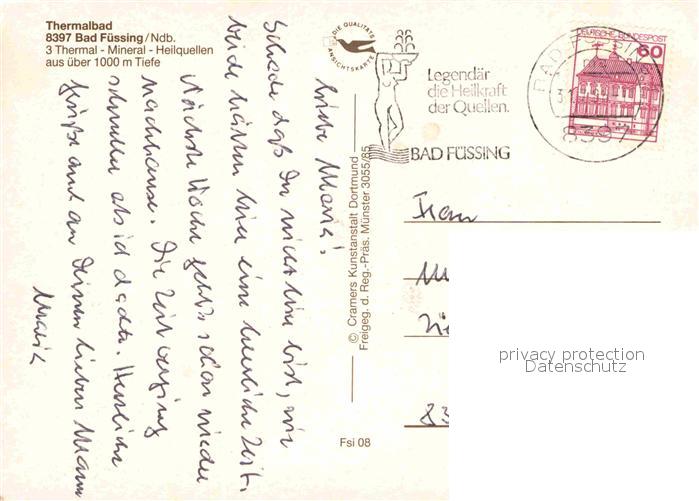 Thermalbad
8397 Bad Füssing/Ndb.
3 Thermal - Mineral - Heilquellen
aus über 1000 m Tiefe
DIE QUALITÄTS
ANSICHTSKARTE
Liebe Maria!
Schade daß Du nicht hier bist, wir
beide hätten hier eine herrliche Zeit.
Nächste Woche geht's schon wieder
nachhause. Die Zeit verging
schneller als ich dachte. Herzliche
Grüße auch an Deinen lieben Mann
Maria
© Cramers Kunstanstalt Dortmund
Freigeg. d. Reg.-Präs. Münster 3055/85
Fsi 08
Legendär
die Heilkraft
der Quellen.
BAD FÜSSING
DEUTSCHE BUNDESPOST
60
BAD FÜSSING
8397
Frau
83
privacy protection
Datenschutz